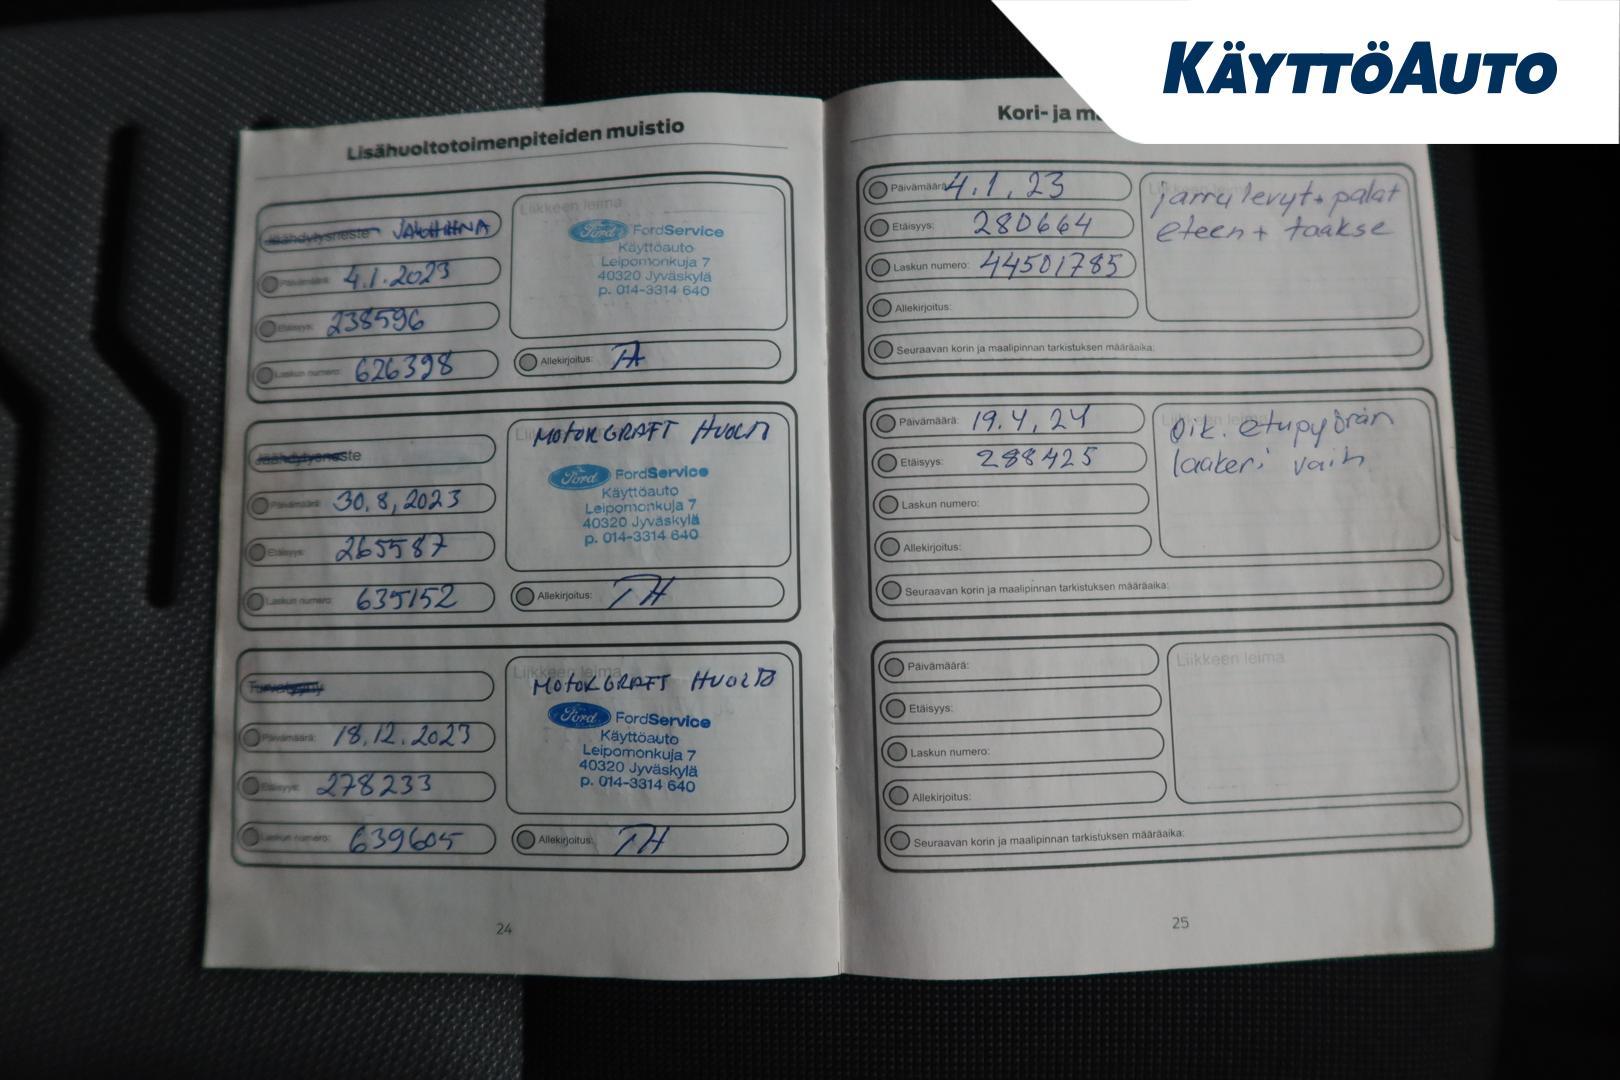 KÄYTTÖAUTO
Lisähuoltotoimenpiteiden muistio
Jäähdytysneste
Liikkeen leima
Ford FordService
Käyttöauto
Leipomonkuja 7
40320 Jyväskylä
p. 014-3314 640
Päivämäärä: 4.1.2023
Etäisyys: 238596
Laskun numero: 626398
Allekirjoitus:
Jäähdytysneste
Liikkeen leima
MOTORCRAFT HUOLTO
Ford FordService
Käyttöauto
Leipomonkuja 7
40320 Jyväskylä
p. 014-3314 640
Päivämäärä: 30.8.2023
Etäisyys: 265587
Laskun numero: 635152
Allekirjoitus: TH
Liikkeen leima
MOTORCRAFT HUOLTO
Ford FordService
Käyttöauto
Leipomonkuja 7
40320 Jyväskylä
p. 014-3314 640
Päivämäärä: 18.12.2023
Etäisyys: 278233
Laskun numero: 639605
Allekirjoitus: TH
24
Kori- ja
Päivämäärä: 4.1.23
Etäisyys: 280664
Laskun numero: 44501785
Allekirjoitus:
Seuraavan korin ja maalipinnan tarkistuksen määräaika:
Liikkeen leima
jarrulevyt + palat
eteen + taakse
Päivämäärä: 19.4.24
Etäisyys: 288425
Laskun numero:
Allekirjoitus:
Seuraavan korin ja maalipinnan tarkistuksen määräaika:
Liikkeen leima
Oik. etupyörän
laakeri vaih
Päivämäärä:
Etäisyys:
Laskun numero:
Allekirjoitus:
Seuraavan korin ja maalipinnan tarkistuksen määräaika:
Liikkeen leima
25